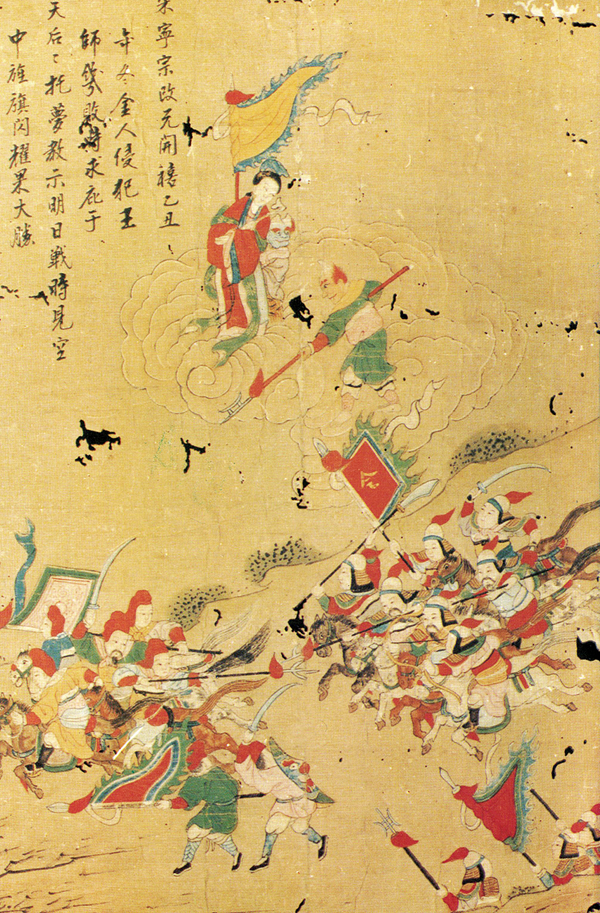 宋寧宗改元開禧乙丑
年冬金人侵犯王
師幾敗時求庇于
天后〻托夢教示明日戰時見空
中旌旗閃耀果大勝
令